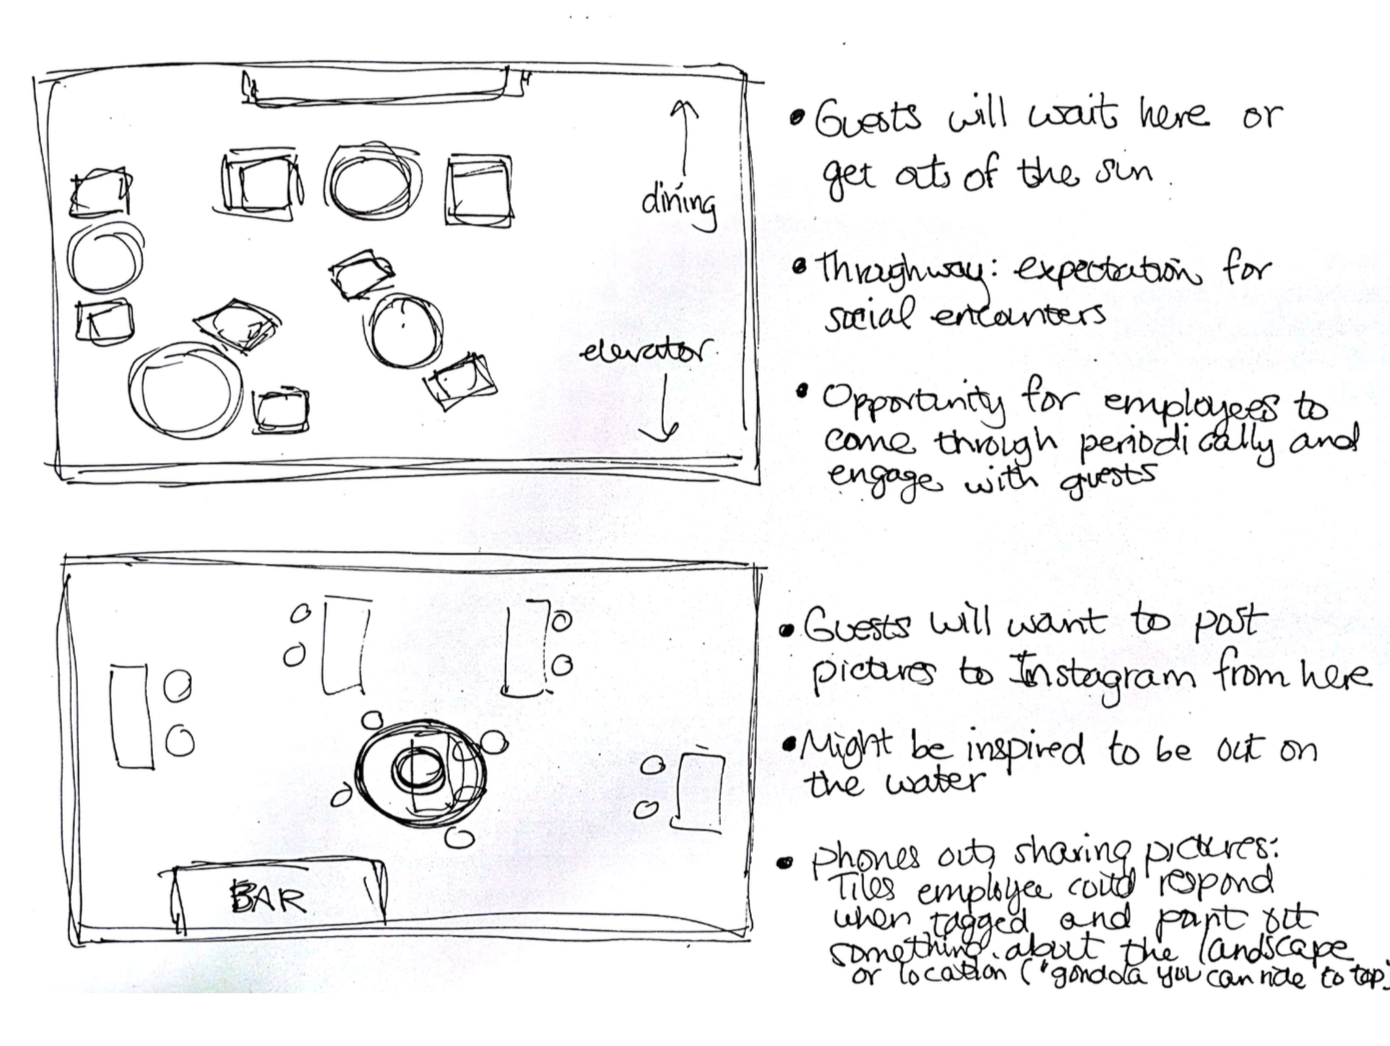 dining
elevator
• Guests will wait here or
get out of the sun
• Throughway: expectation for
social encounters
• Opportunity for employees to
come through periodically and
engage with guests
BAR
• Guests will want to post
pictures to Instagram from here
• Might be inspired to be out on
the water
• phones out, sharing pictures:
Tiles employee could respond
when tagged and point out
something about the landscape
or location ("gondola you can ride to top